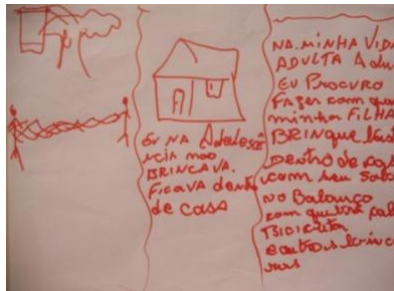 EU NA Adolesê
ncia não
BRINCAVA.
Ficava dentro
de casa
NA.MINHA VIDA
ADULTA
EU PROCURO
Fazer com que
minha FILHA
BRINque
Dentro de casa
com seu
NO Balanço
com
e outros brinca